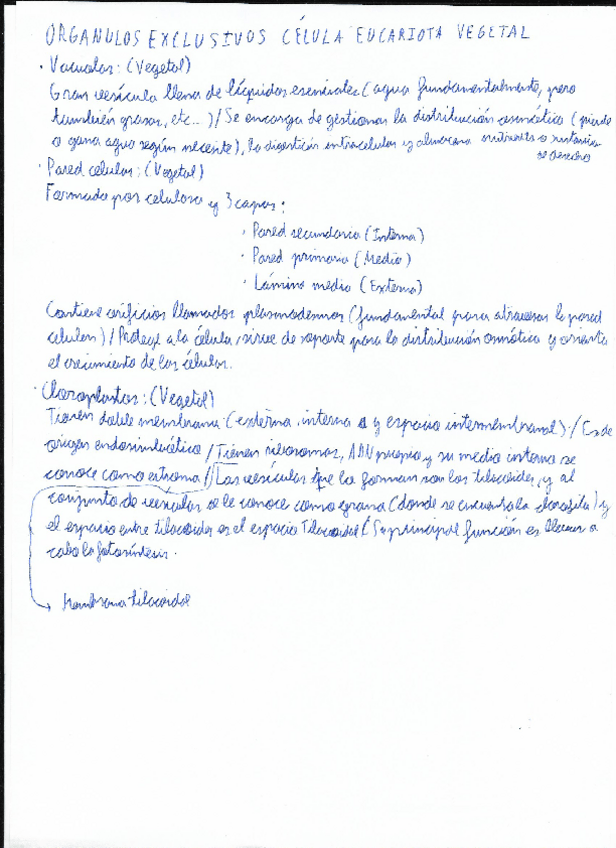 ORGANULOS EXCLUSIVOS CÉLULA EUCARIOTA VEGETAL
· Vacuolas: (Vegetal)
Gran vesícula llena de líquidos esenciales (agua fundamentalmente, pero
también grasas, etc...) / Se encarga de gestionar la distribución osmótica (pierde
o gana agua según necesite), la digestión intracelular y almacena nutrientes o sustancias
de desecho
· Pared celular: (Vegetal)
Formada por celulosa y 3 capas:
· Pared secundaria (Interna)
· Pared primaria (Media)
· Lámina media (Externa)
Contiene orificios llamados plasmodesmos (fundamental para atravesar la pared
celular) / Protege a la célula / sirve de soporte para la distribución osmótica y orienta
el crecimiento de las células.
· Cloroplastos: (Vegetal)
Tienen doble membrana (externa, interna y espacio intermembranal) / Es de
origen endosimbiótico / Tienen ribosomas, ADN propio y su medio interno se
conoce como estroma / Las vesículas que lo forman son los tilacoides, y al
conjunto de vesículas se le conoce como grana (donde se encuentra la clorofila) y
el espacio entre tilacoides es el espacio Tilacoidal / Su principal función es llevar a
cabo la fotosíntesis.
Membrana tilacoidal